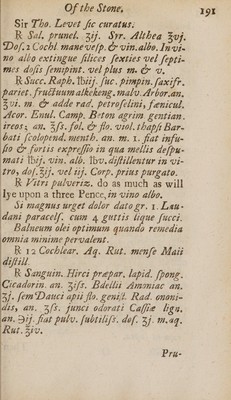 Of the Stone, 191
Sir Tho. Levet sic curatus.
℞ Sal. prunel. ʒij. Syr. Althea ʒvj.
Dos. 2 Cochl mane vesp. & vin. albo. In vi-
no albo extingue silices sexties vel septi-
mes dosis semipint. vel plus m. & v.
℞ Succ. Raph. ℔iij. suc. pimpin. saxifr.
pariet. fructuum alkekeng. malv Arbor. an.
ʒvi. m & adde rad. petroselini, fœnicul.
Acor. Enul. Camp. Beton agrim gentian.
ireos; an. ʒss. fol. & flo. viol. thapsi Bar-
bati scolopend. menth. an. m. 1. fiat infu-
sio & fortis expressio in qua mellis despu-
mati ℔ij. vin. alb. ℔v. distillentur in vi-
tro, dos. ʒij. vel iij. Corp. prius purgato.
℞ Vitri pulveriz. do as much as will
lye upon a three Pence, in vino albo.
Si magnus urget dolor dato gr. 1. Lau-
dani paracels. cum 4 guttis lique succi.
Balneum olei optimum quando remedia
omnia minime pervalent.
℞ 12 Cochlear. Aq. Rut. mense Maii
distill.
℞ Sanguin. Hirci præpar. lapid. spong.
Cicadorin. an. ʒiss. Bdellii Amoniac an.
ʒj. sem Dauci apii flo. genist. Rad. ononi-
dis, an. ʒss. junci odorati Cassiæ lign.
an. ℈ij. fiat pulv. subtilis. dos. ʒj. m. aq.
Rut. ʒiv.
Pru-